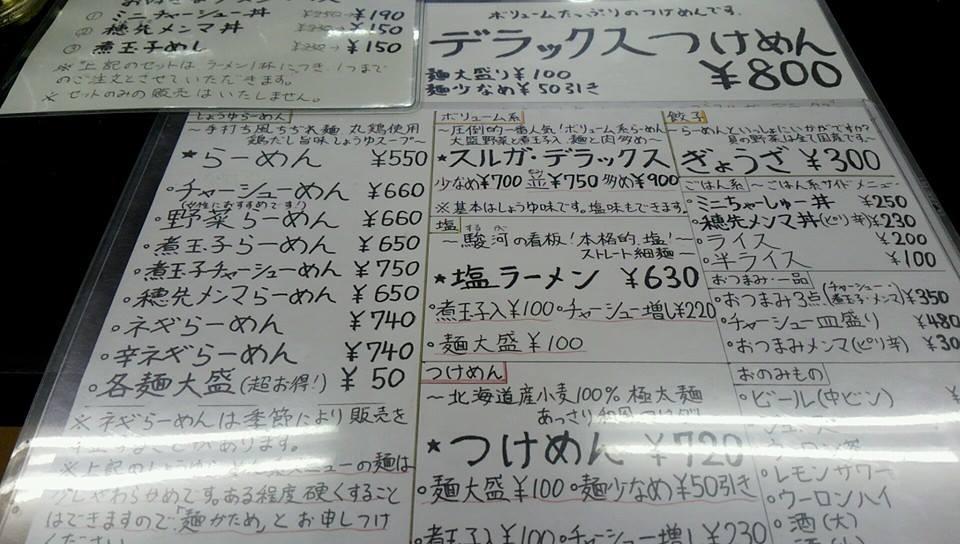 ①ミニチャーシュー丼 ¥190
②穂先メンマ丼 ¥150
③煮玉子めし ¥150
※上記のセットはラーメン1杯につき、1つまで
のご注文とさせていただきます。
※セットのみの販売はいたしません。
ボリュームたっぷりのつけめんです。
デラックスつけめん
¥800
麺大盛り¥100
麺少なめ¥50引き
しょうゆらーめん
～手打ち風ちぢれ麺 丸鶏使用
鶏だし旨味しょうゆスープ～
★らーめん ¥550
・チャーシューめん ¥660
(女性におすすめです!)
・野菜らーめん ¥660
・煮玉子らーめん ¥650
・煮玉子チャーシューめん ¥750
・穂先メンマらーめん ¥650
・ネギらーめん ¥740
・辛ネギらーめん ¥740
・各麺大盛(超お得!) ¥50
※ネギらーめんは季節により販売を
があります。
※上記のしょうゆ メニューの麺は
少しやわらかめです。ある程度硬くすること
はできますので「麺かため」とお申しつけ
ください
ボリューム系
～圧倒的一番人気!ボリューム系らーめん
大盛野菜と煮玉子入 麺と肉多め～
★スルガ・デラックス
少なめ¥700 並¥750 多め¥900
※基本はしょうゆ味です。塩味もできます。
塩
～駿河の看板!本格的塩!～
するが
ストレート細麺
★塩ラーメン ¥630
・煮玉子入¥100・チャーシュー増し¥220
・麺大盛¥100
つけめん
～北海道産小麦100% 極太麺
あっさり和風
★つけめん ¥720
・麺大盛¥100・麺少なめ¥50引き
・煮玉子入¥100・チャーシュー増し¥230
餃子
～らーめんといっしょにいかがですか?
具の野菜は全て国産です～
ぎょうざ ¥300
ごはん系 ～ごはん系サイドメニュー
・ミニちゃーしゅー丼 ¥250
・穂先メンマ丼(ピリ辛) ¥230
・ライス ¥200
・半ライス ¥100
おつまみ一品
・おつまみ3点(チャーシュー・煮玉子・メンマ) ¥350
・チャーシュー皿盛り ¥480
・おつまみメンマ(ピリ辛)
おのみもの
・ビール(中ビン)
・レモンサワー
・ウーロンハイ
・酒(大)